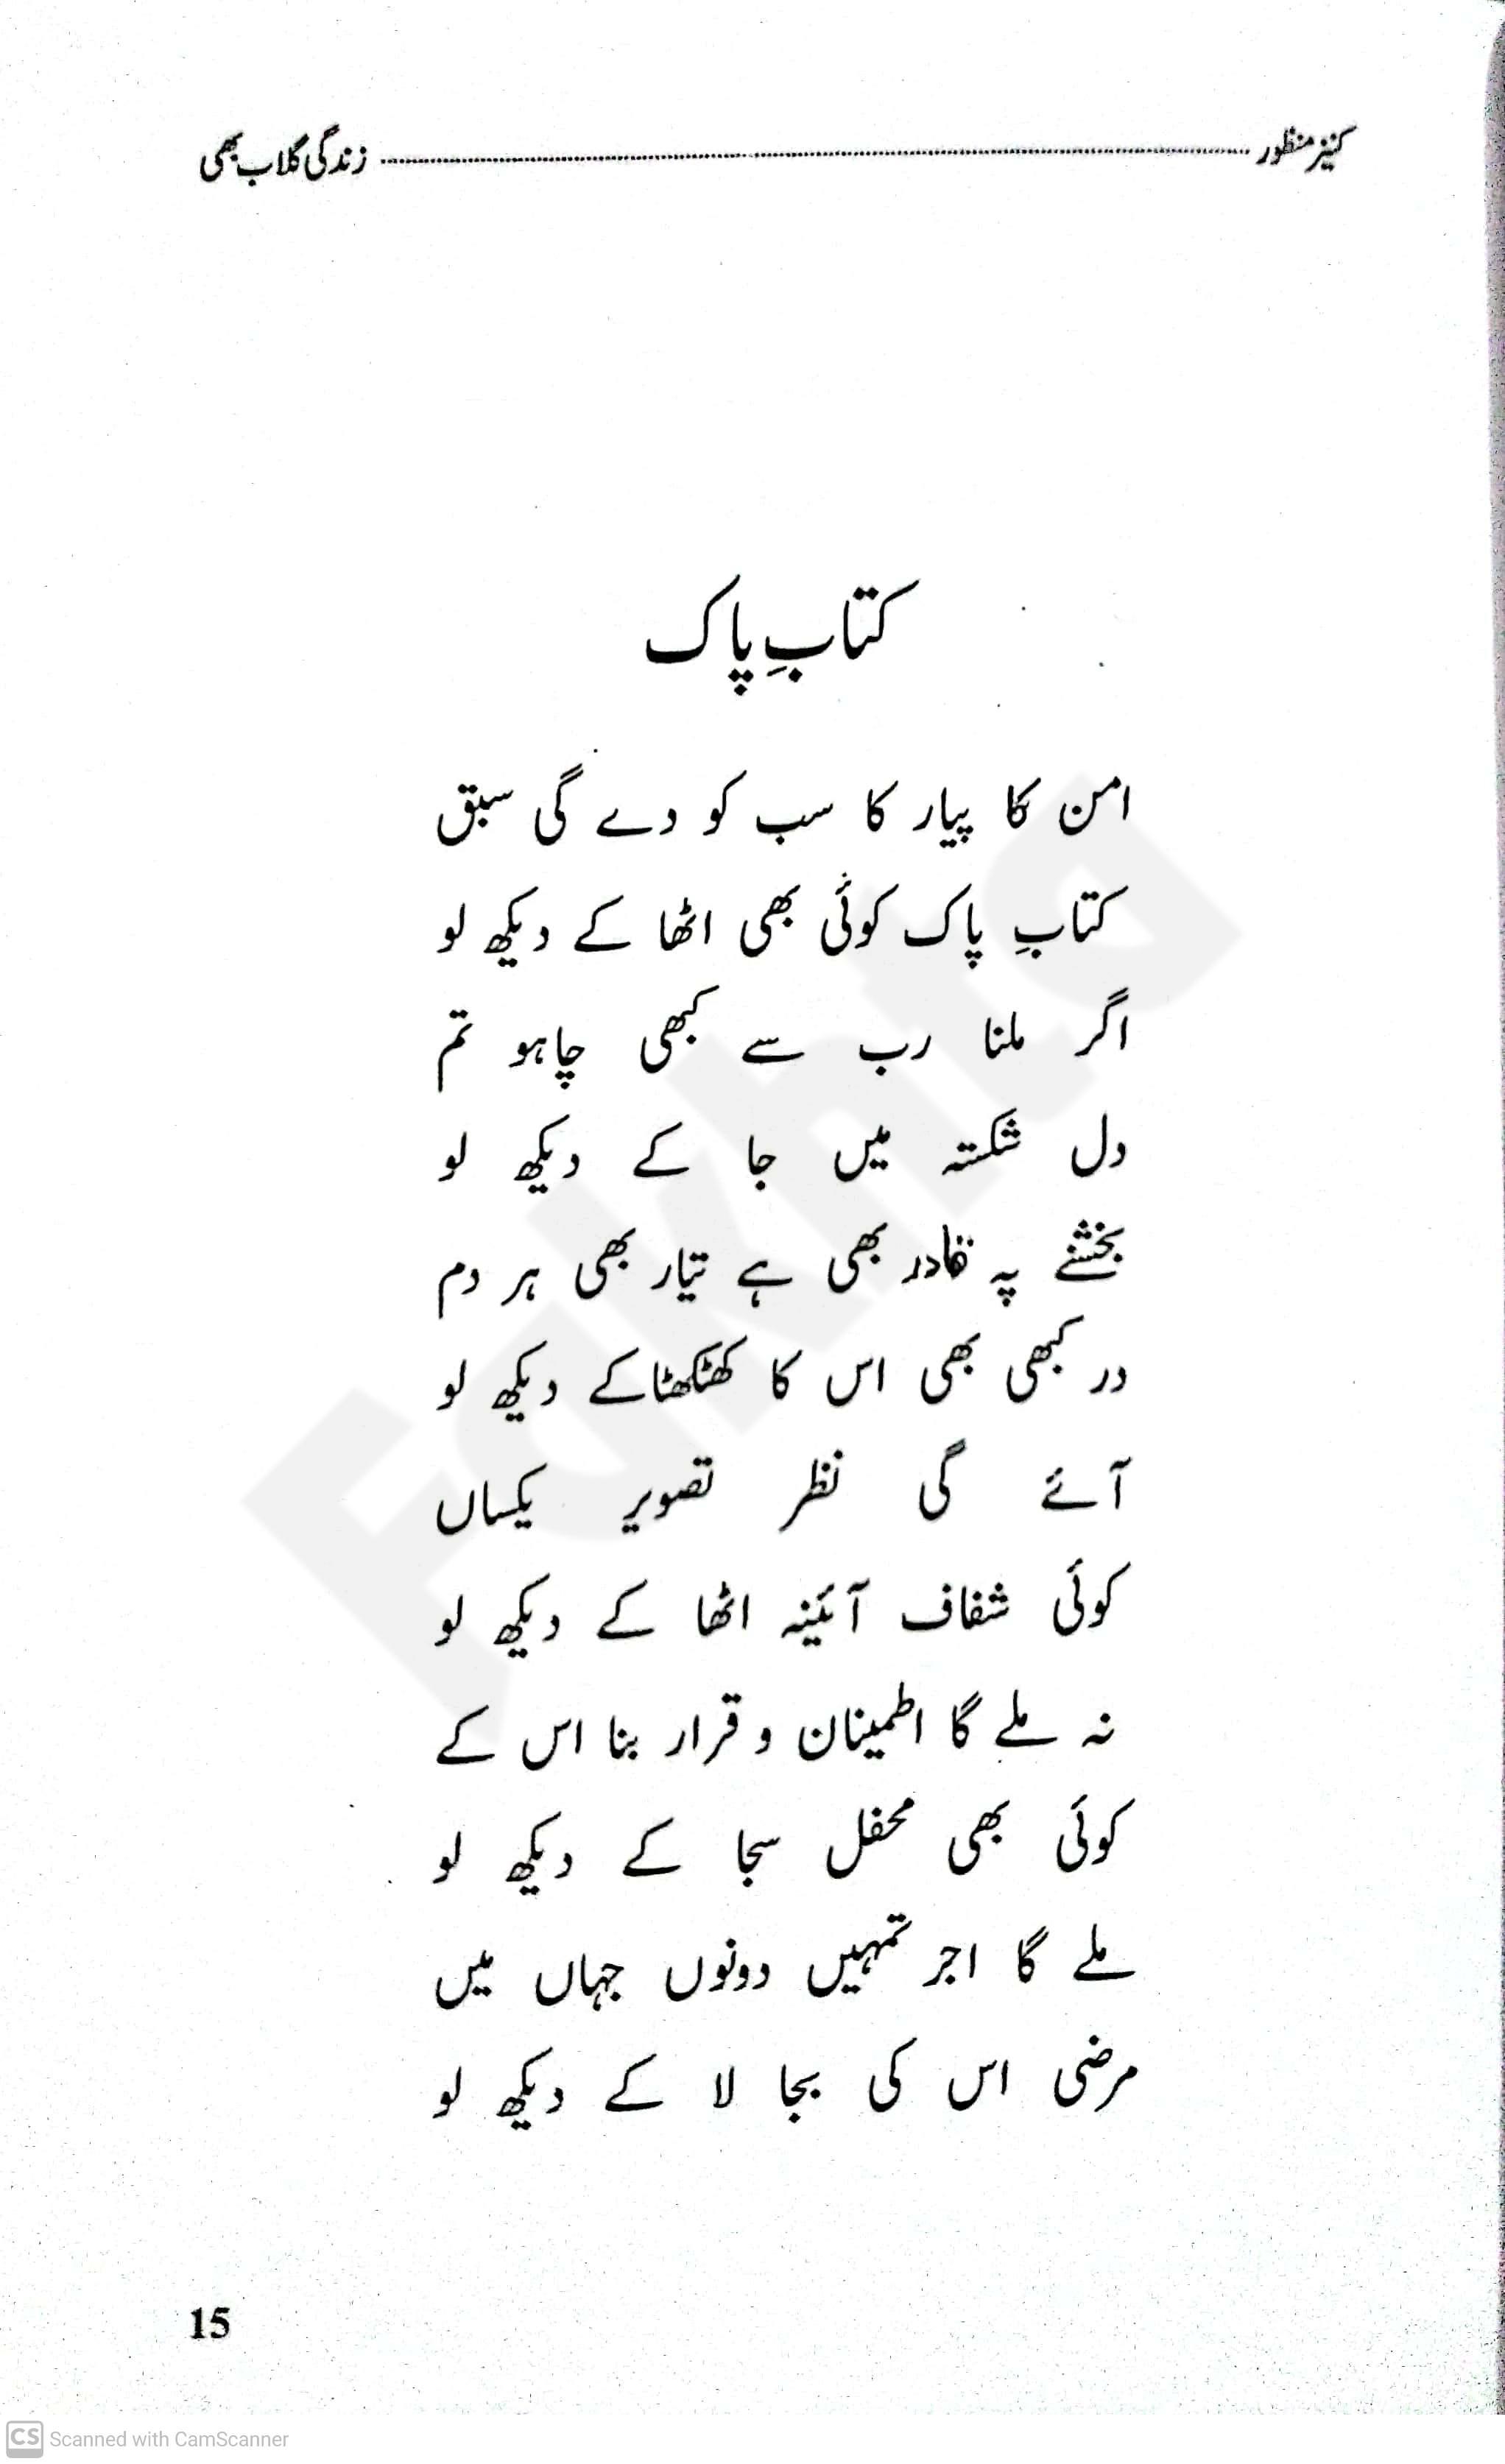 کنیز منظور ........ زندگی گلاب بھی
کتابِ پاک
امن کا پیار کا سب کو دے گی سبق
کتابِ پاک کوئی بھی اٹھا کے دیکھ لو
اگر ملنا رب سے کبھی چاہو تم
دل شکستہ میں جا کے دیکھ لو
بخشنے پہ قادر بھی ہے تیار بھی ہر دم
در کبھی بھی اس کا کھٹکھٹا کے دیکھ لو
آئے گی نظر تصویر یکساں
کوئی شفاف آئینہ اٹھا کے دیکھ لو
نہ ملے گا اطمینان و قرار بنا اس کے
کوئی بھی محفل سجا کے دیکھ لو
ملے گا اجر تمہیں دونوں جہاں میں
مرضی اس کی بجا لا کے دیکھ لو
Fakhta
15
CS Scanned with CamScanner